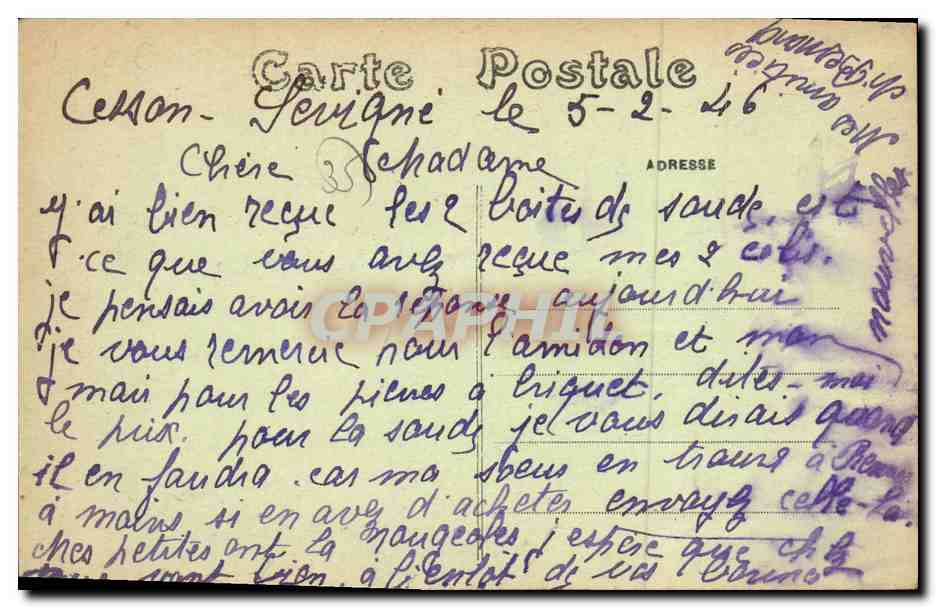 Carte Postale
Cesson-Sevigné le 5-2-46
Chère Madame
35
ADRESSE
j'ai bien reçue les 2 boites de soude, est
ce que vous avez reçue mes 2 colis.
je pensais avoir la réponse aujourd'hui
CPAPHIL
je vous remercie pour l'amidon et mon
mari pour les pierres à briquet, dites-moi
le prix. pour la soude je vous dirais quand
il en faudra. car ma soeur en trouve à Rennes
à moins si en avez d'acheter envoyez celle-là.
mes petites ont la rougeoles j'espère que chez
vous vont bien, à bientôt de vos bonnes
nouvelles
Mes amitiés